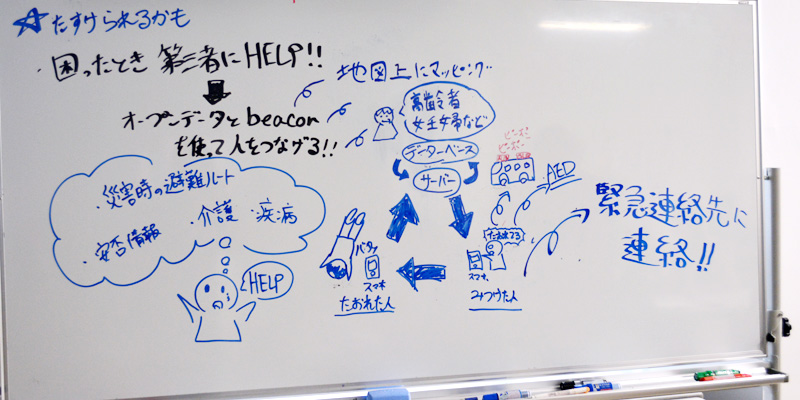 ☆たすけられるかも
・困ったとき 第三者にHELP!!
オープンデータとbeacon
を使って人をつなげる!!
地図上にマッピング
高齢者
妊婦など
データーベース
サーバー
ピーポー
ピーポー
AED
・災害時の避難ルート
・安否情報
・介護・疾病
HELP
バタッ
スマホ
たおれた人
たおれてる
スマホ
みつけた人
緊急連絡先に
連絡!!